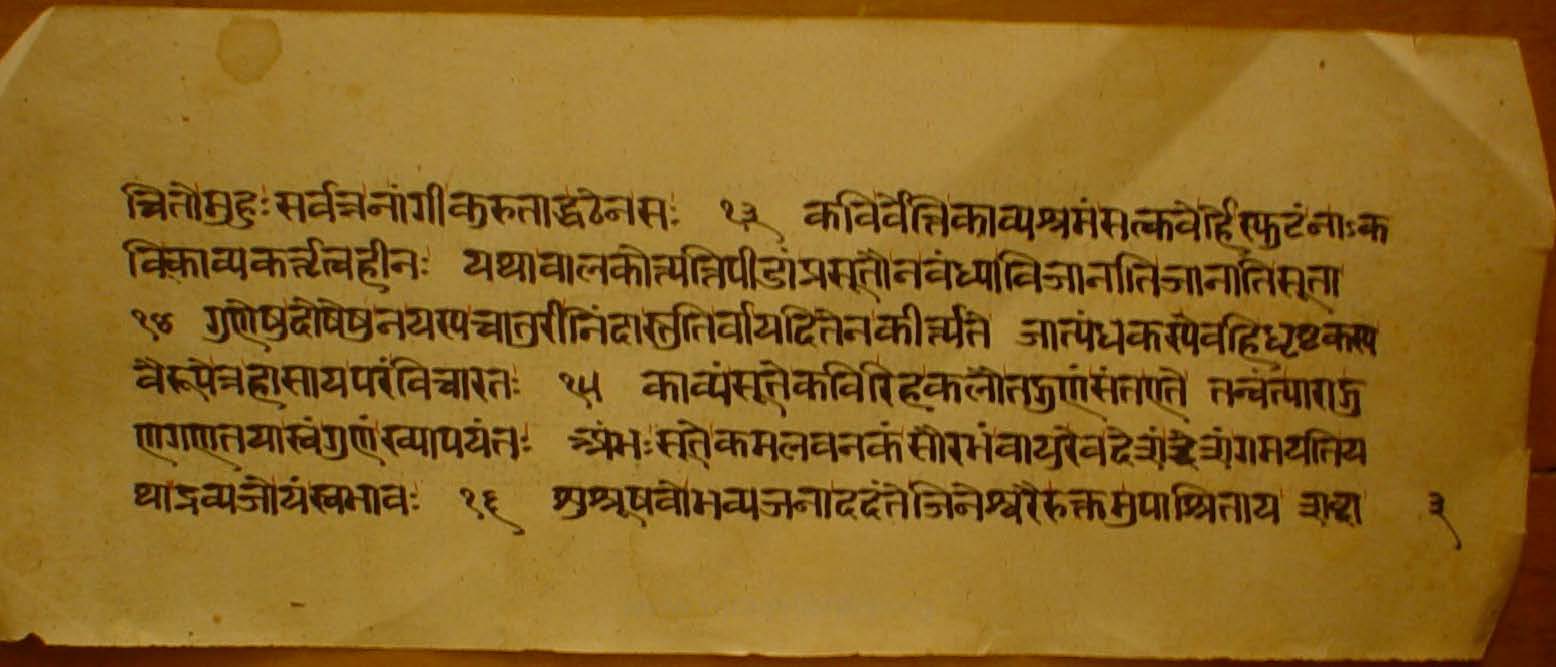 च्चितौमुहुः सर्वत्रनांगीकुरुताद्धठेनसः १३ कविर्वेत्तिकाव्यश्रमंसत्कवेर्हिस्फुटंनाऽक
विःकाव्यकर्तृत्वहीनः यथावालकोत्पत्तिपीडांप्रसूतौनवंध्याविजानातिजानातिसूता
१४ गुणेषुदोषेषुनयस्यचातुरीनिंदास्तुतिर्वायदितेनकीर्त्त्यते जात्यंधकस्येवहिधृष्टकस्य
वैरूपेत्रहासायपरंविचारतः १५ काव्यंसूतेकविरिहकलौतद्गुणंसंतएते तन्वंत्यारागु
णगणतयास्वंगुणंख्यापयंतः अंभःसूतेकमलवनकंसौरभंवायुरेवदेशंदेशंगमयतिय
थाद्रव्यजोयंस्वभावः १६ शुश्रूषवोभव्यजनाददंतेजिनेश्वरैरुक्तमुपाश्रिताय शब्दा ३